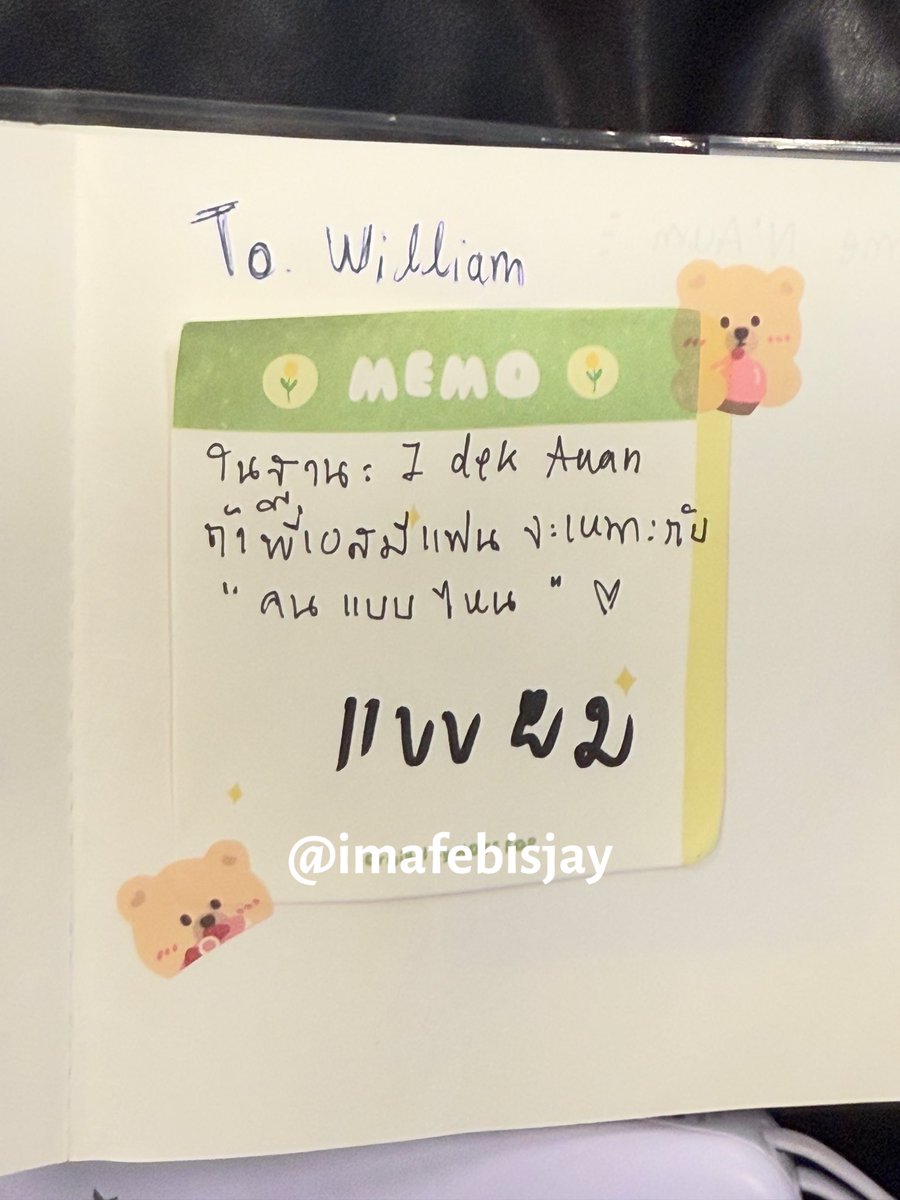 To. William
MEMO
ในฐานะ I dek Auan
ถ้าพี่เอสมีแฟน จะเหมาะกับ
" คน แบบ ไหน " ♡
แบบ ผม
@imafebisjay